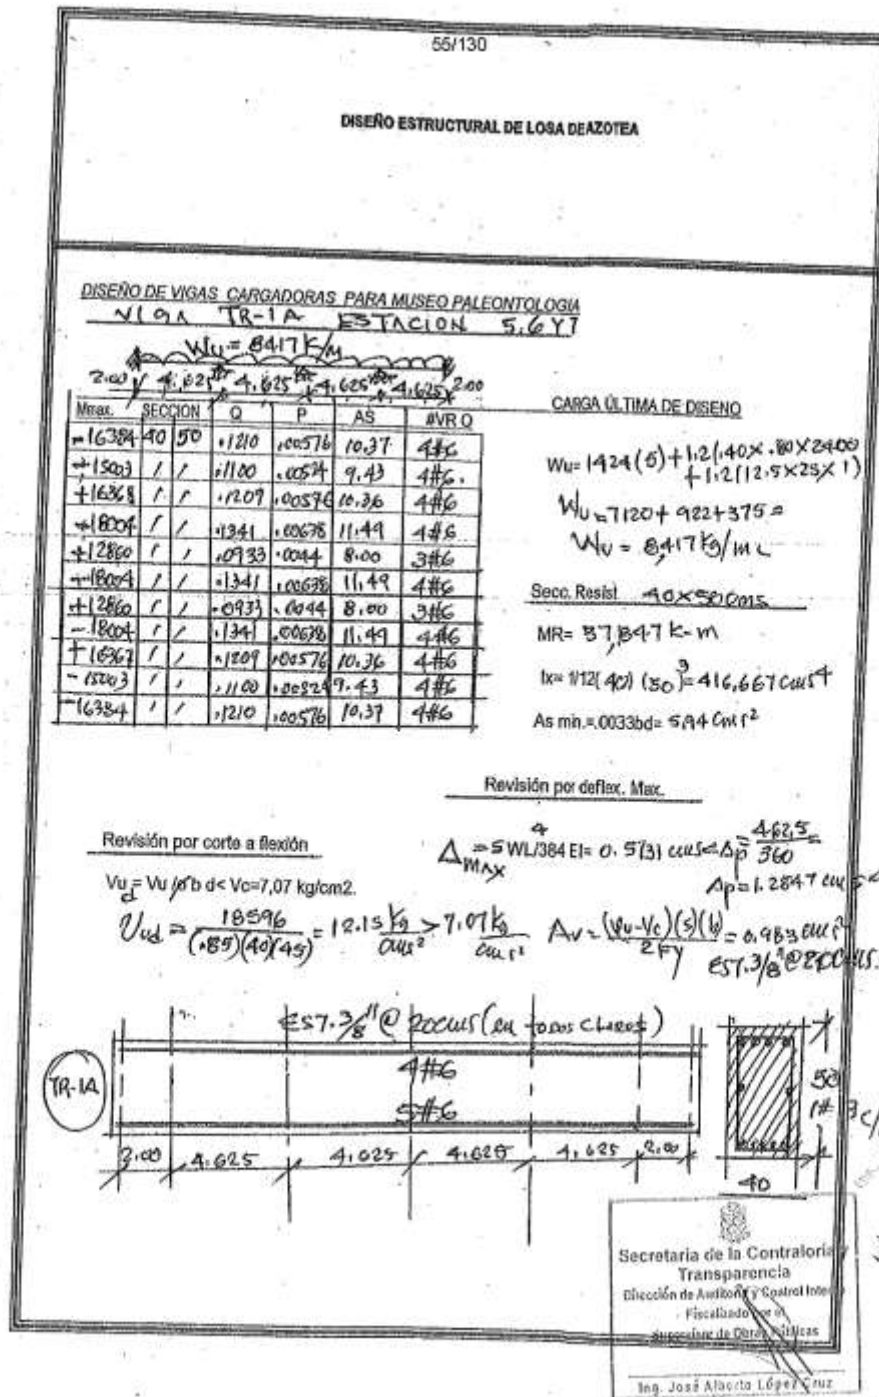 55/130
DISEÑO ESTRUCTURAL DE LOSA DEAZOTEA
DISEÑO DE VIGAS CARGADORAS PARA MUSEO PALEONTOLOGIA
VIGA TR-1A ESTACION 5.6 Y 7
Wu= 8417 K/m
2.00 4.625 4.625 4.625 4.625 2.00
Mmax. SECCION Q P AS #VR O
-16384 40 50 .1210 .00576 10.37 4#6
+15003 / / .1100 .00524 9.43 4#6.
+16368 / / .1209 .00576 10.36 4#6
-18004 / / .1341 .00638 11.49 4#6
+12860 / / .0933 .0044 8.00 3#6
-18004 / / .1341 .00638 11.49 4#6
+12860 / / .0933 .0044 8.00 3#6
-18004 / / .1341 .00638 11.49 4#6
+16367 / / .1209 .00576 10.36 4#6
-15003 / / .1100 .00524 9.43 4#6
-16384 / / .1210 .00576 10.37 4#6
CARGA ÚLTIMA DE DISENO
Wu= 1424(5)+1.2(.40X.80X2400
+1.2(12.5X25X1)
Wu=7120+922+375=
Wu= 8,417 Kg/mL
Secc. Resist. 40X50cms
MR= 37,847 K-m
Ix= 1/12(40)(50)³=416,667 cms4
As min.=.0033bd= 5,94 Cms2
Revisión por deflex. Max.
Δmax=5 WL4/384 EI= 0.5731 cms<Δp=462.5/360=
Δp=1.2847 cms
Revisión por corte a flexión
Vud= Vu/øb d< Vc=7,07 kg/cm2.
Vud= 18596/(.85)(40)(45) = 12.15 Kg/cms² > 7.07 Kg/cms²
Av= (Vu-Vc)(s)(b)/2Fy = 0.983 cms²
EST.3/8"@20CMS.
EST.3/8"@ 20cms(en todos CLAROS)
TR-1A
4#6
5#6
50
40
2.00 4.625 4.625 4.625 4.625 2.00
Secretaria de la Contraloria y
Transparencia
Dirección de Auditoría y Control Interno
Fiscalizado por el
Supervisor de Obras Públicas
Ing. José Alberto López Cruz